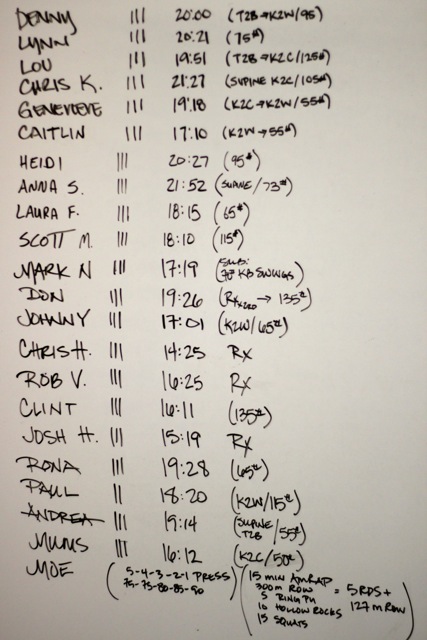 DENNY III 20:00 (T2B→K2W/95)
LYNN III 20:21 (75#)
LOU III 19:51 (T2B→K2C/125#)
CHRIS K. III 21:27 (SUPINE K2C/105#)
GENEVIEVE III 19:18 (K2C→K2W/55#)
CAITLIN III 17:10 (K2W→55#)
HEIDI III 20:27 (95#)
ANNA S. III 21:52 (SUPINE/73#)
LAURA F. III 18:15 (65#)
SCOTT M. III 18:10 (115#)
MARK N III 17:19 (SUB: KB SWINGS)
DON III 19:26 (RX → 135#)
JOHNNY III 17:01 (K2W/65#)
CHRIS H. III 14:25 RX
ROB V. III 16:25 RX
CLINT III 16:11 (135#)
JOSH H. III 15:19 RX
RONA III 19:28 (65#)
PAUL II 18:20 (K2W/15#)
ANDREA III 19:14 (SUPINE T2B/55#)
MUMS III 16:12 (K2C/50#)
MOE (5-4-3-2-1 PRESS
75-75-80-85-90)
(15 MIN AMRAP
300M ROW
5 RING PU
10 HOLLOW ROCKS
15 SQUATS)
= 5 RDS +
127 M ROW